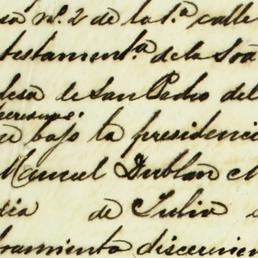 sa nº. 2 de la 1.ª calle
testament.ª de la Sra
desa de San Pedro del
bajo la presidenci
Manuel Dublan
dia de Julio
bramiento discernien